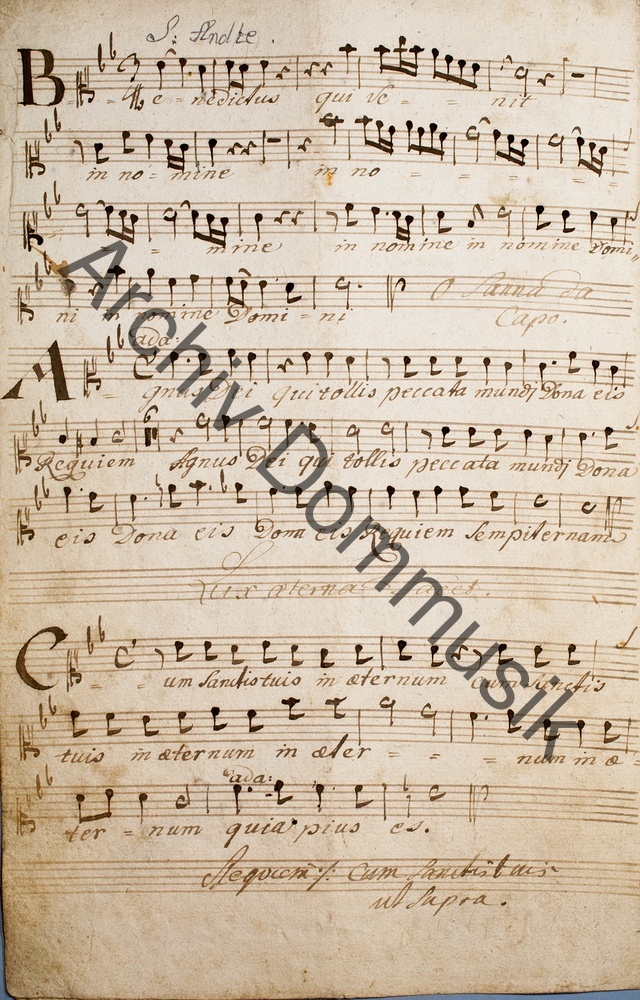 S: Andte.
Be = nedictus qui Ve = = nit
in no = mine in no = = = =
= = mine in nomine in nomine Domi
ni in nomine Domi = ni O Sanna da
Capo.
ada:
A = gnus Dei qui tollis peccata mundj Dona eis
Requiem Agnus Dei qui tollis peccata mundj Dona
eis Dona eis Dona eis Requiem Sempiternam
Lux æterna Tacet.
C = = um Sanctis tuis in æternum Cum Sanctis
tuis in æternum in æter = = = num in æ =
ada:
ter = num quia pius es.
Requiem :/: Cum Sanctis tuis
ut Supra.
Archiv Dommusik